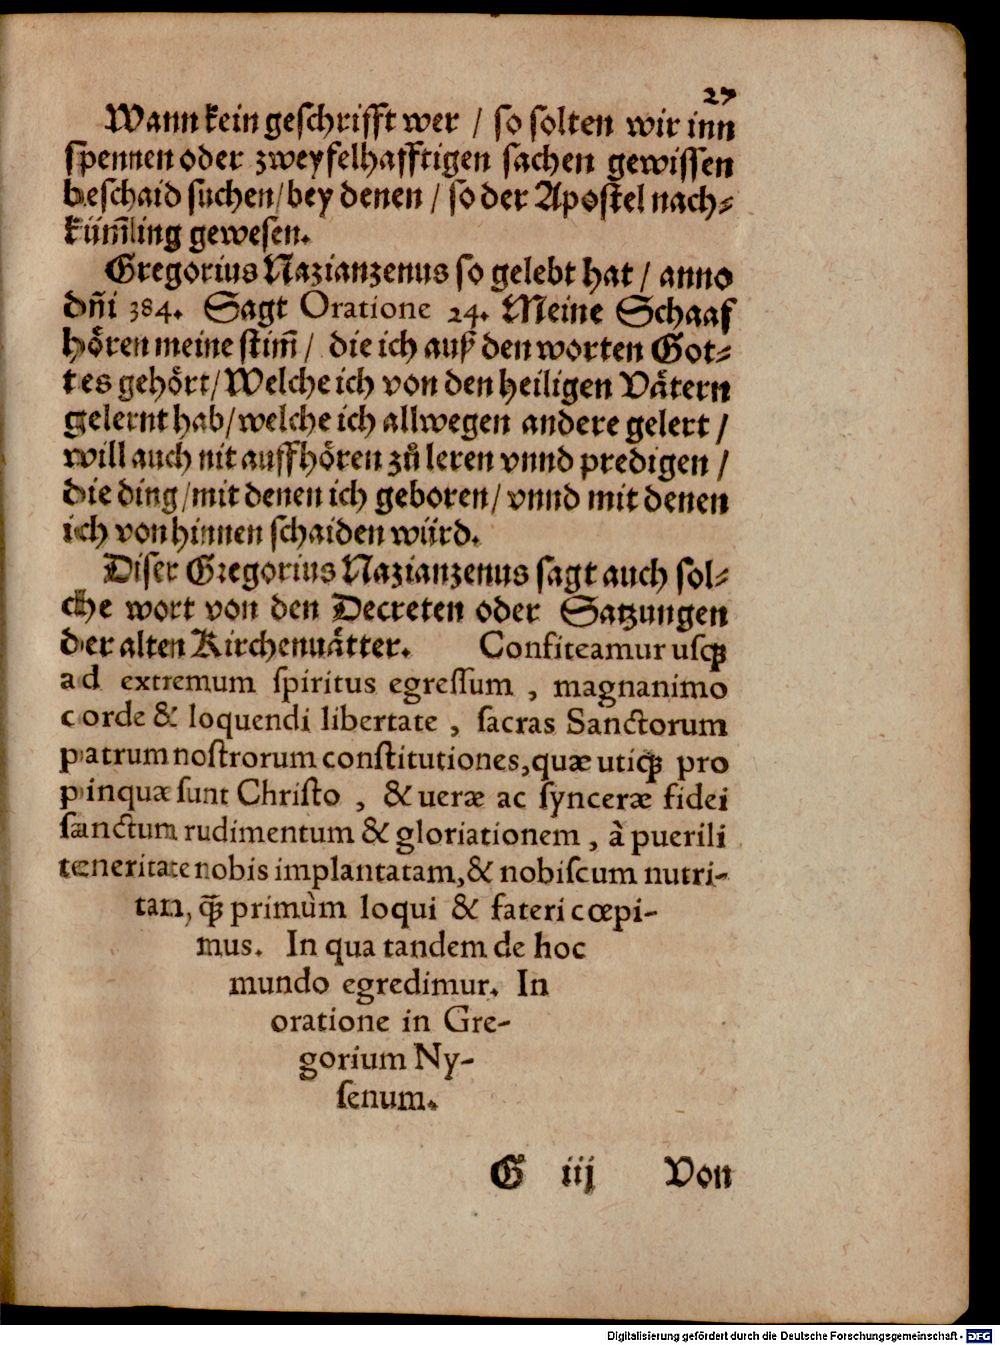 27
Wann kein geschrifft wer / so solten wir inn
spennen oder zweyfelhafftigen sachen gewissen
beschaid sůchen / bey denen / so der Apostel nach⸗
küm̃ling gewesen.
Gregorius Nazianzenus so gelebt hat / anno
dñi 384. Sagt Oratione 24. Meine Schaaf
hören meine stim̃ / die ich auß den worten Got⸗
tes gehört / Welche ich von den heiligen Vätern
gelernt hab / welche ich allwegen andere gelert /
will auch nit auffhören zů leren vnnd predigen /
die ding / mit denen ich geboren / vnnd mit denen
ich von hinnen schaiden würd.
Diser Gregorius Nazianzenus sagt auch sol⸗
che wort von den Decreten oder Satzungen
der alten Kirchenuätter. Confiteamur usq̃
ad extremum spiritus egressum , magnanimo
corde & loquendi libertate , sacras Sanctorum
patrum nostrorum constitutiones, quæ utiq̃ pro
pinquæ sunt Christo , & ueræ ac synceræ fidei
sanctum rudimentum & gloriationem , à puerili
teneritate nobis implantatam, & nobiscum nutri-
tam, q̃ primùm loqui & fateri cœpi-
mus. In qua tandem de hoc
mundo egredimur. In
oratione in Gre-
gorium Ny-
senum.
G iij Von
Digitalisierung gefördert durch die Deutsche Forschungsgemeinschaft - DFG